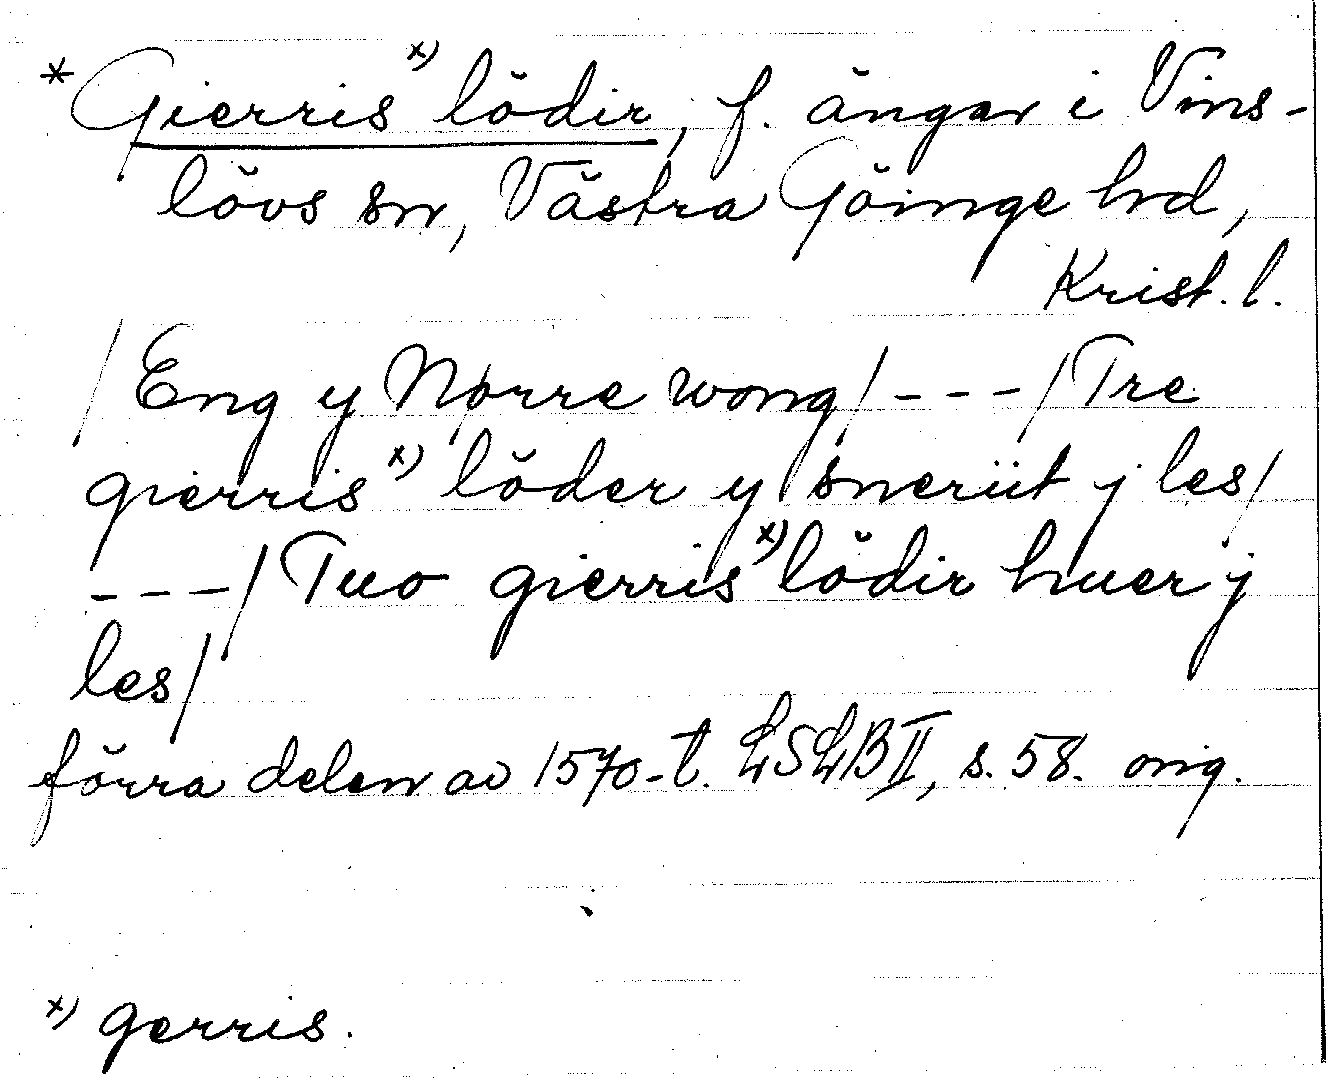 * Gierris x) lödir, f. ängar i Vins-
lövs sn, Västra Göinge hd,
Krist. l.
/Eng y Nørre wong/ - - - /Tre
gierris x) löder y snerüt j les/
- - - /Tuo gierris x) lödir huer j
les/
förra delen av 1570-t. LSLB II, s. 58. orig.
x) gerris.